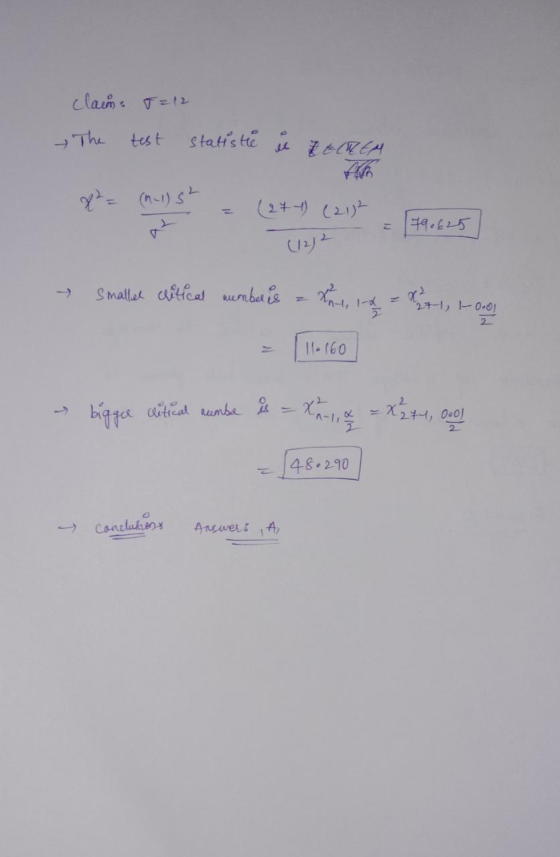 Claim: σ = 12
→ The test statistic is
χ² = (n-1) s² / σ² = (27-1) (21)² / (12)² = 79.625
→ Smaller critical number is = χ²n-1, 1-α/2 = χ²27-1, 1-0.01/2
= 11.160
→ bigger critical numbe is = χ²n-1, α/2 = χ²27-1, 0.01/2
= 48.290
→ Conclusion: Answer: A,